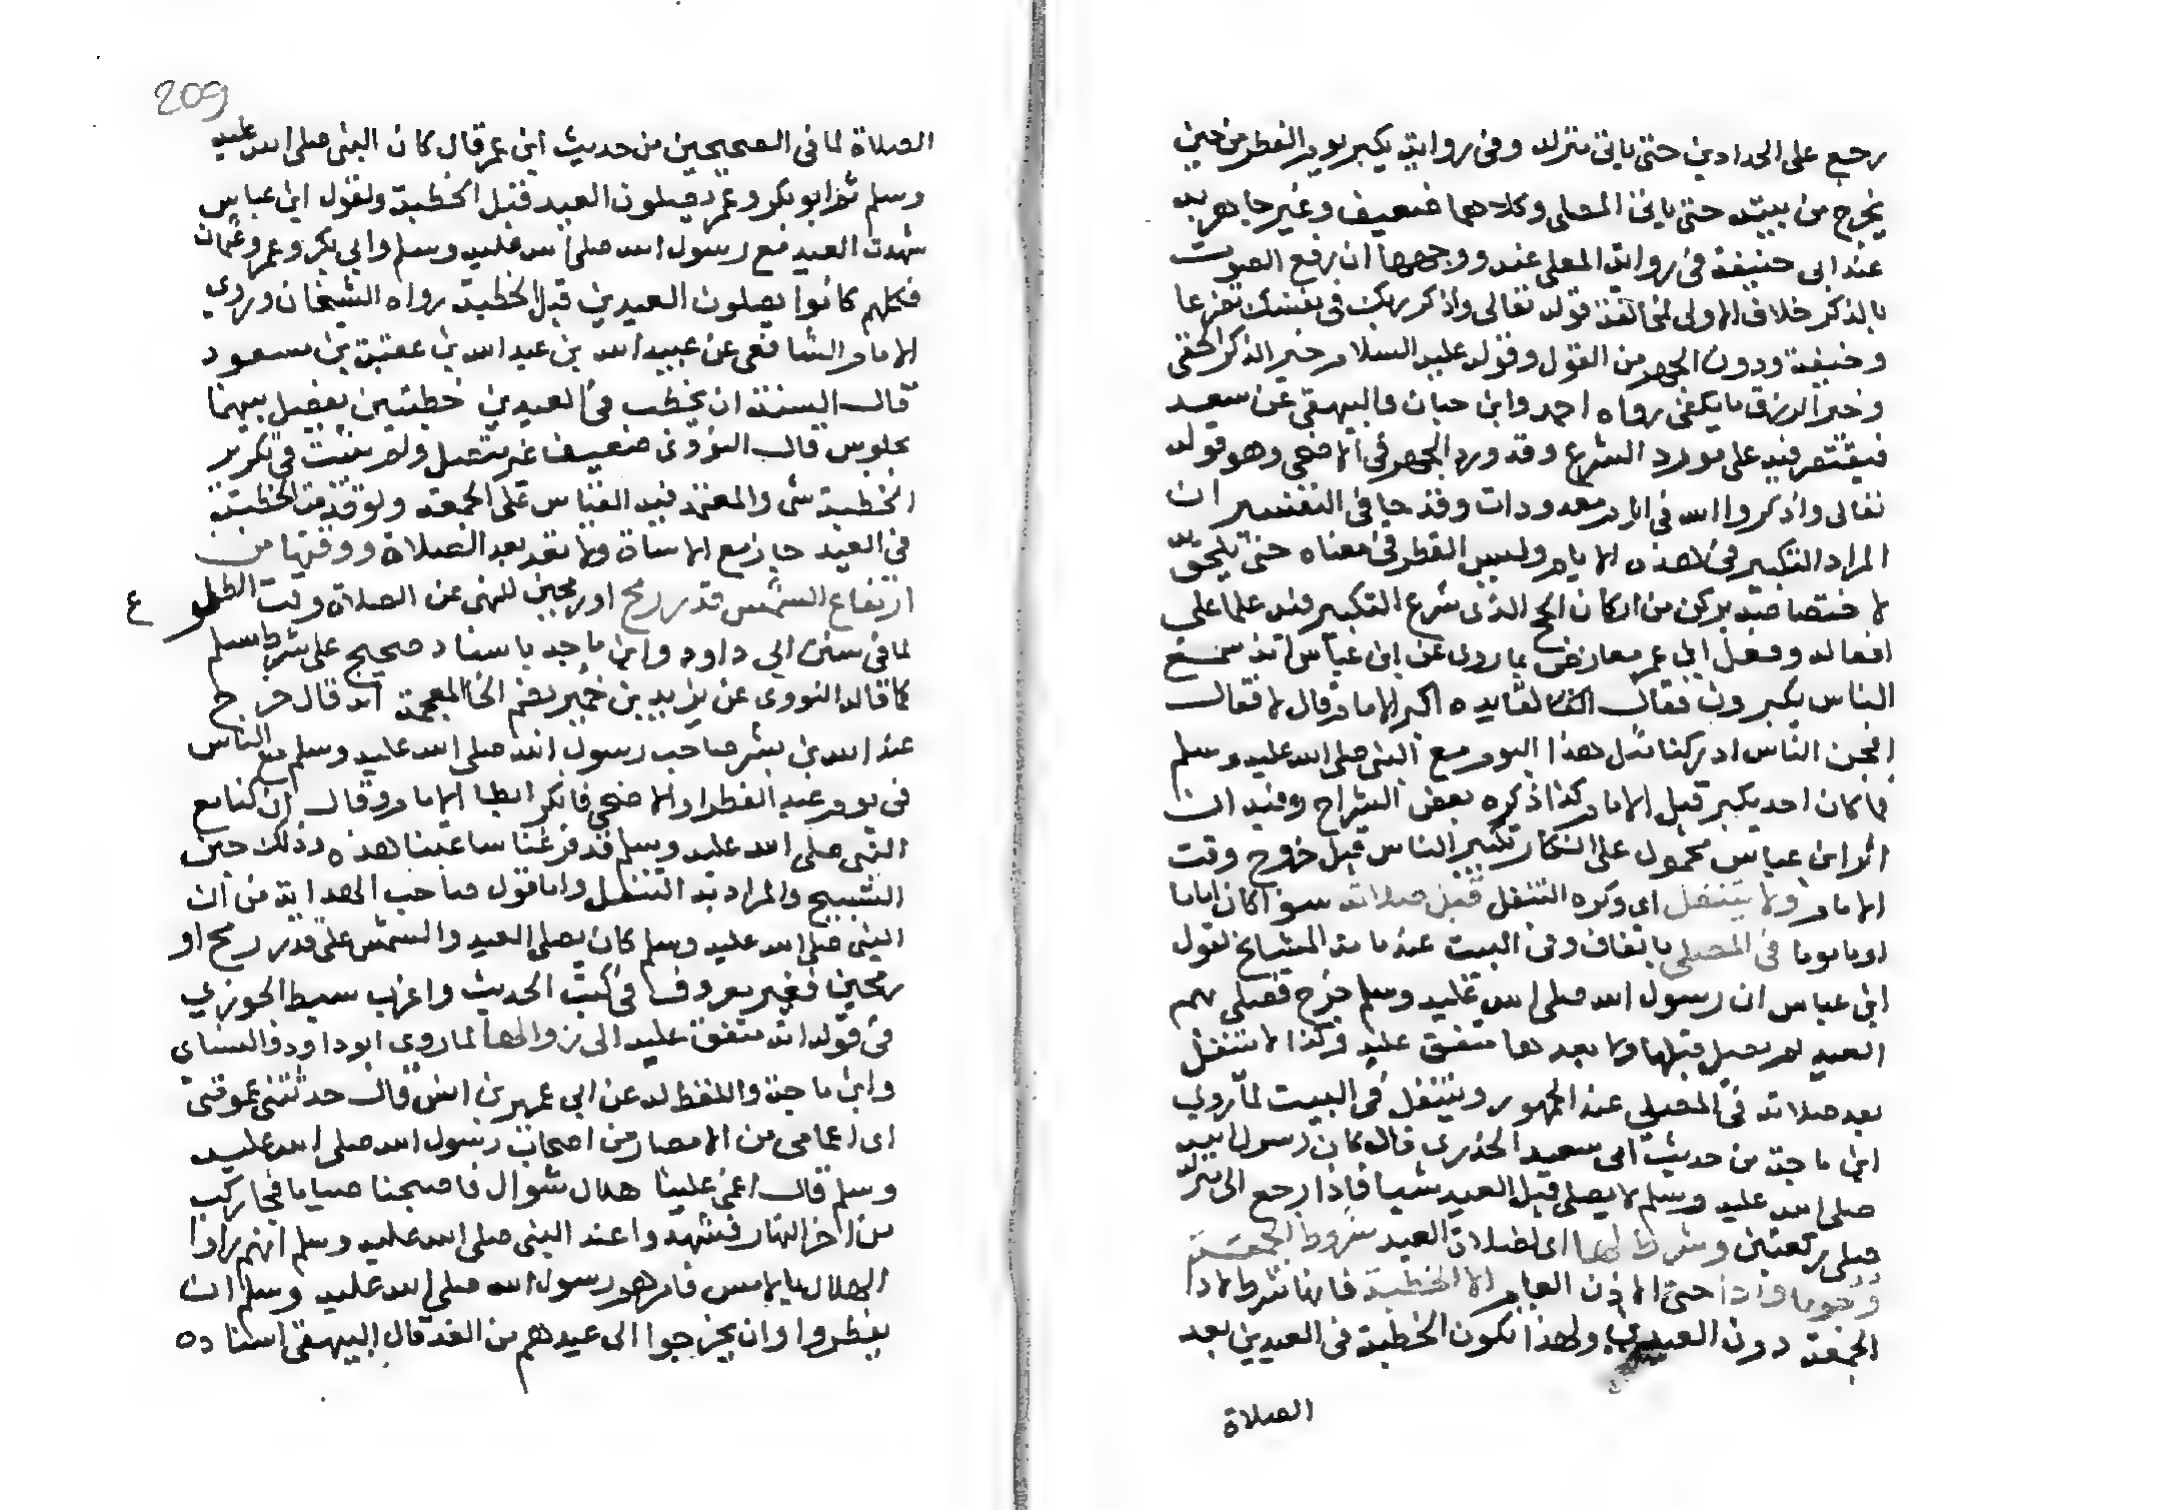 رجع على الحدادين حتى ياتى منزله وفى رواية يكبر يوم الفطر من حين
يخرج من بيته حتى ياتى المصلى وكلاهما ضعيف وغير جاهر به
عند ابى حنيفة فى رواية المعلى عنه ووجهها ان رفع الصوت
بالذكر خلاف الاولى لمخالفة قوله تعالى واذكر ربك فى نفسك تضرعا
وخيفة ودون الجهر من القول وقوله عليه السلام خير الذكر الخفى
وخير الرزق ما يكفى رواه احمد وابن حبان والبيهقى عن سعد
فيقتصر فيه على مورد الشرع وقد ورد الجهر فى الاضحى وهو قوله
تعالى واذكروا الله فى ايام معدودات وقد جا فى التفسير ان
المراد التكبير فى هذه الايام وليس الفطر فى معناه حتى يلحق به
لاختصاصه بركن من اركان الحج الذى شرع التكبير فيه علما على
افعاله وفعل ابن عمر معارض بما روى عن ابن عباس انه سمع
الناس يكبرون فقال لقايده اكبر الامام قال لا فقال
افجن الناس ادركنا مثل هذا اليوم مع النبى صلى الله عليه وسلم
فما كان احد يكبر قبل الامام كذا ذكره بعض الشراح وفيه ان
اثر ابن عباس محمول على انكار تكبير الناس قبل خروج وقت
الامام ولا يتنفل اى وكره التنفل قبل صلاته سوا كان اماما
او ماموما فى المصلى باتفاق وفى البيت عند عامة المشايخ لقول
ابن عباس ان رسول الله صلى الله عليه وسلم خرج فصلى بهم
العيد لم يصل قبلها ولا بعدها متفق عليه وكذا لا يتنفل
بعد صلاته فى المصلى عند الجمهور ويتنفل فى البيت لما روى
ابن ماجة من حديث ابى سعيد الخدرى قال كان رسول الله
صلى الله عليه وسلم لا يصلى قبل العيد شيا فاذا رجع الى منزله
صلى ركعتين وشرط لها اى لصلاة العيد شروط الجمعة
وجوبا وادا حتى الاذن العام الا الخطبة فانها شرط لادا
الجمعة دون العيدين ولهذا تكون الخطبة فى العيدين بعد
الصلاة
209
الصلاة لما فى الصحيحين من حديث ابن عمر قال كان النبى صلى الله عليه
وسلم ثم ابو بكر وعمر يصلون العيد قبل الخطبة ولقول ابن عباس
شهدت العيد مع رسول الله صلى الله عليه وسلم وابى بكر وعمر وعثمان
فكلهم كانوا يصلون العيدين قبل الخطبة رواه الشيخان وروى
الامام الشافعى عن عبيد الله بن عبد الله بن عتبة بن مسعود
قال السنة ان يخطب فى العيدين خطبتين يفصل بينهما
بجلوس قال النووى ضعيف غير متصل ولم يثبت فى تكرير
الخطبة شى والمعتمد فيه القياس على الجمعة ولو قدمت الخطبة
فى العيد جاز مع الاساة ولا تعد بعد الصلاة ووقتها من
ارتفاع الشمس قدر رمح او رمحين للنهى عن الصلاة وقت الطلوع
لما فى سنن ابى داود وابن ماجه باسناد صحيح على شرط مسلم
كما قاله النووى عن يزيد بن خمير بضم الخا المعجمة انه قال خرج
عبد الله بن بشر صاحب رسول الله صلى الله عليه وسلم مع الناس
فى يوم عيد الفطر او الاضحى فانكر ابطا الامام وقال ان كنا مع
النبى صلى الله عليه وسلم قد فرغنا ساعتنا هذه وذلك حين
التسبيح والمراد به التنفل واما قول صاحب الهداية من ان
النبى صلى الله عليه وسلم كان يصلى العيد والشمس على قدر رمح او
رمحين فغير معروف فى كتب الحديث واغرب سبط الجوزي
فى قوله انه متفق عليه الى زوالها لما روى ابو داود والنساى
وابن ماجة واللفظ له عن ابى عمير بن انس قال حدثتنى عمومتى
اى اعمامى من الانصار من اصحاب رسول الله صلى الله عليه
وسلم قال اغمى علينا هلال شوال فاصبحنا صياما فجا ركب
من اخر النهار فشهدوا عند النبى صلى الله عليه وسلم انهم راوا
الهلال بالامس فامرهم رسول الله صلى الله عليه وسلم ان
يفطروا وان يخرجوا الى عيدهم من الغد قال البيهقى اسناده